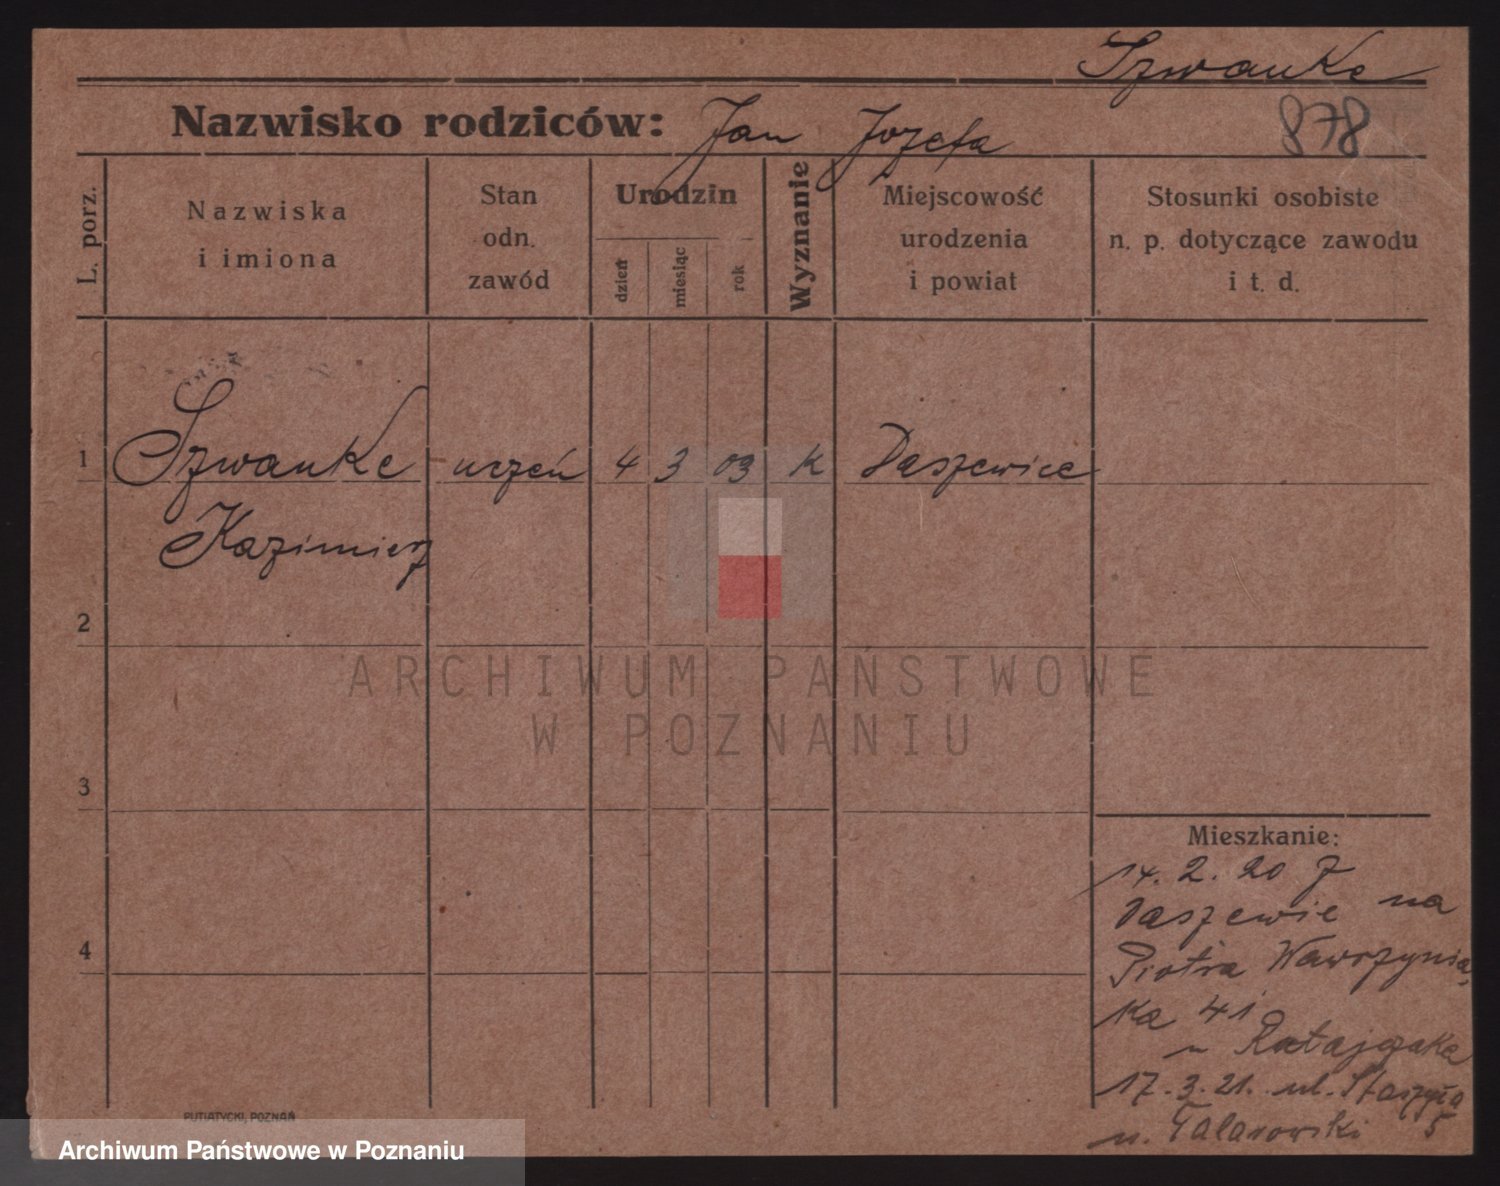 Szwanke
Nazwisko rodziców: Jan Jozefa
878
L. porz.
Nazwiska
i imiona
Stan
odn.
zawód
Urodzin
dzień
miesiąc
rok
Wyznanie
Miejscowość
urodzenia
i powiat
Stosunki osobiste
n. p. dotyczące zawodu
i t. d.
1 Szwanke uczeń 4 3 03 k Daszewice
Kazimierz
2
ARCHIWUM PAŃSTWOWE
W POZNANIU
3
Mieszkanie:
14. 2. 20 z
Daszewic na
Piotra Wawrzynia
4
ka 41
u Ratajczaka
17. 3. 21. ul.
5
u. Talarowski
PUTIATYCKI, POZNAŃ
Archiwum Państwowe w Poznaniu